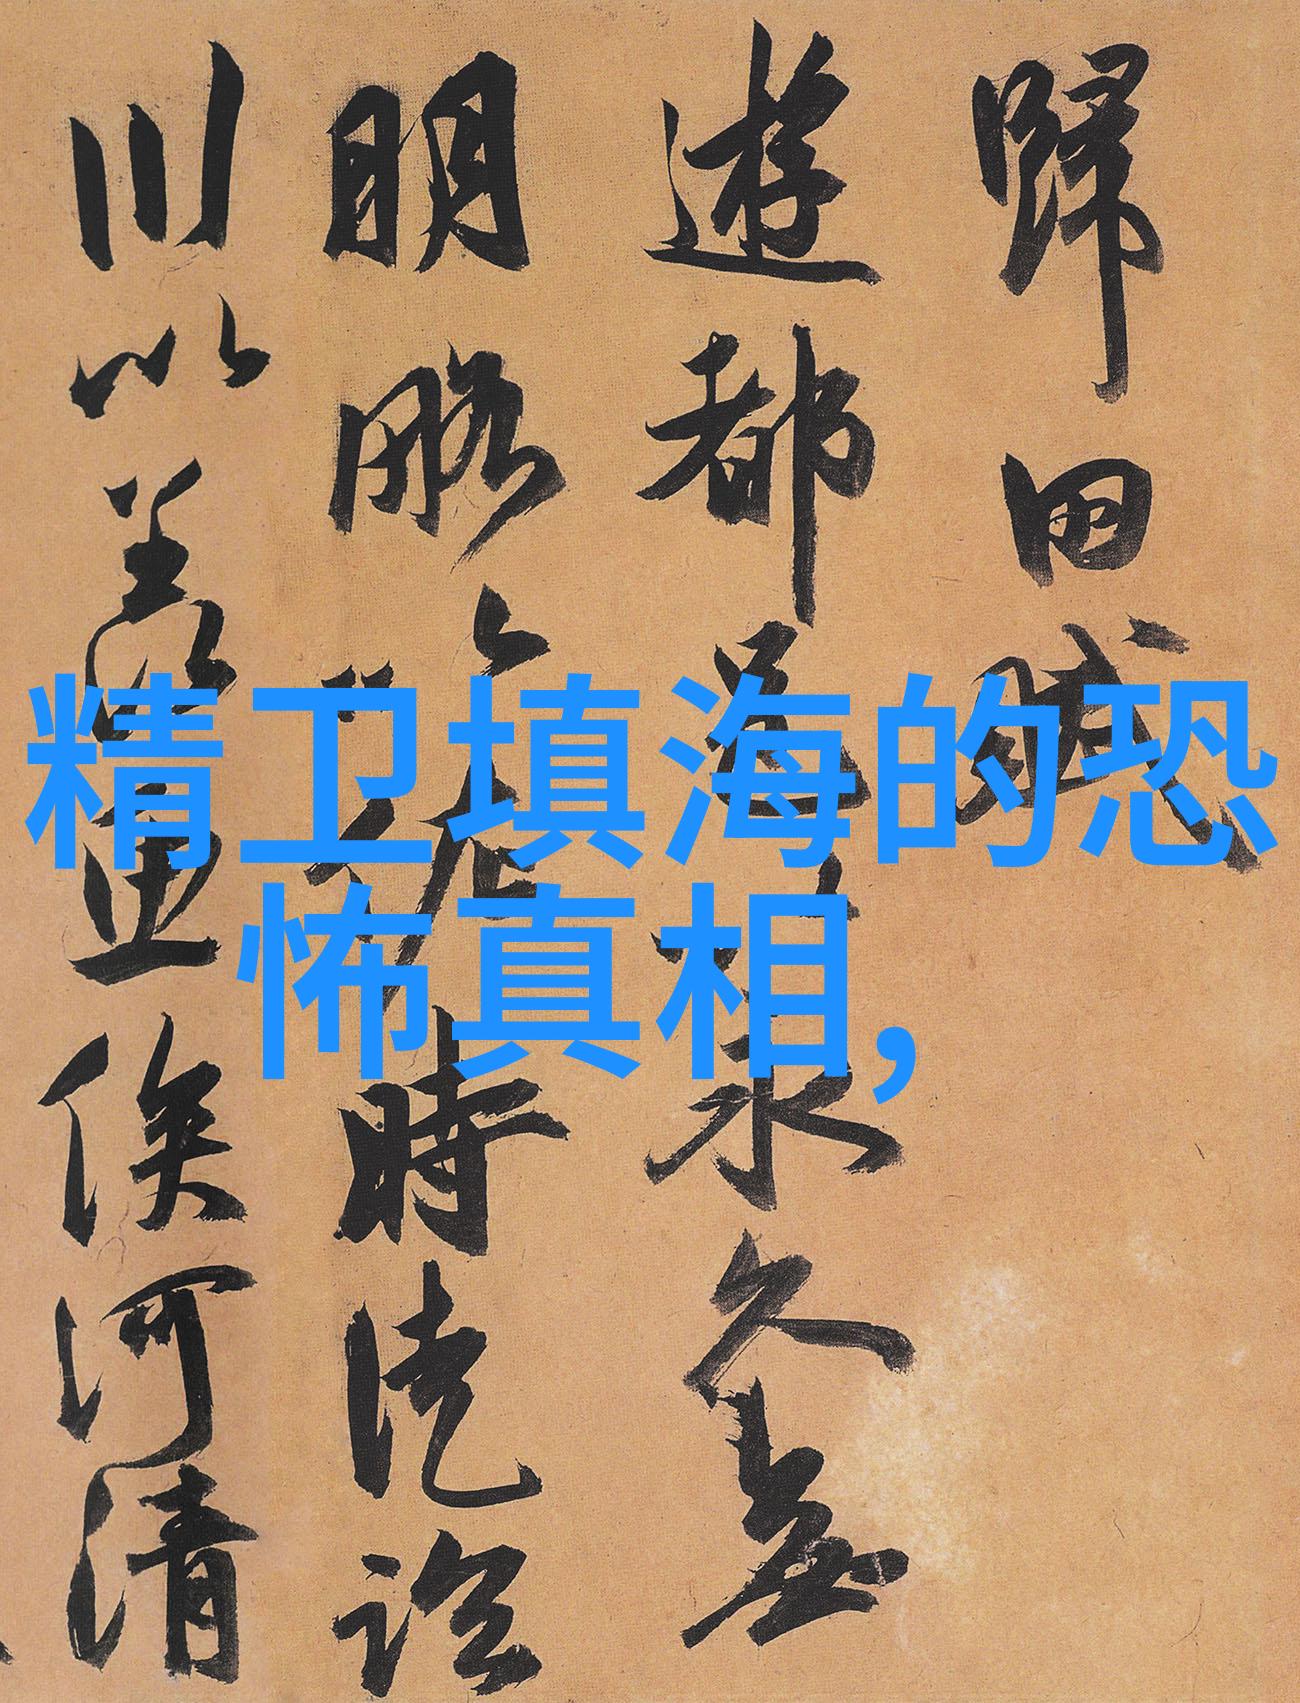 歸田賦
遊都邑以永久無
明略以佐時徒臨
川以羨魚俟河清
精卫填海的恐
怖真相,